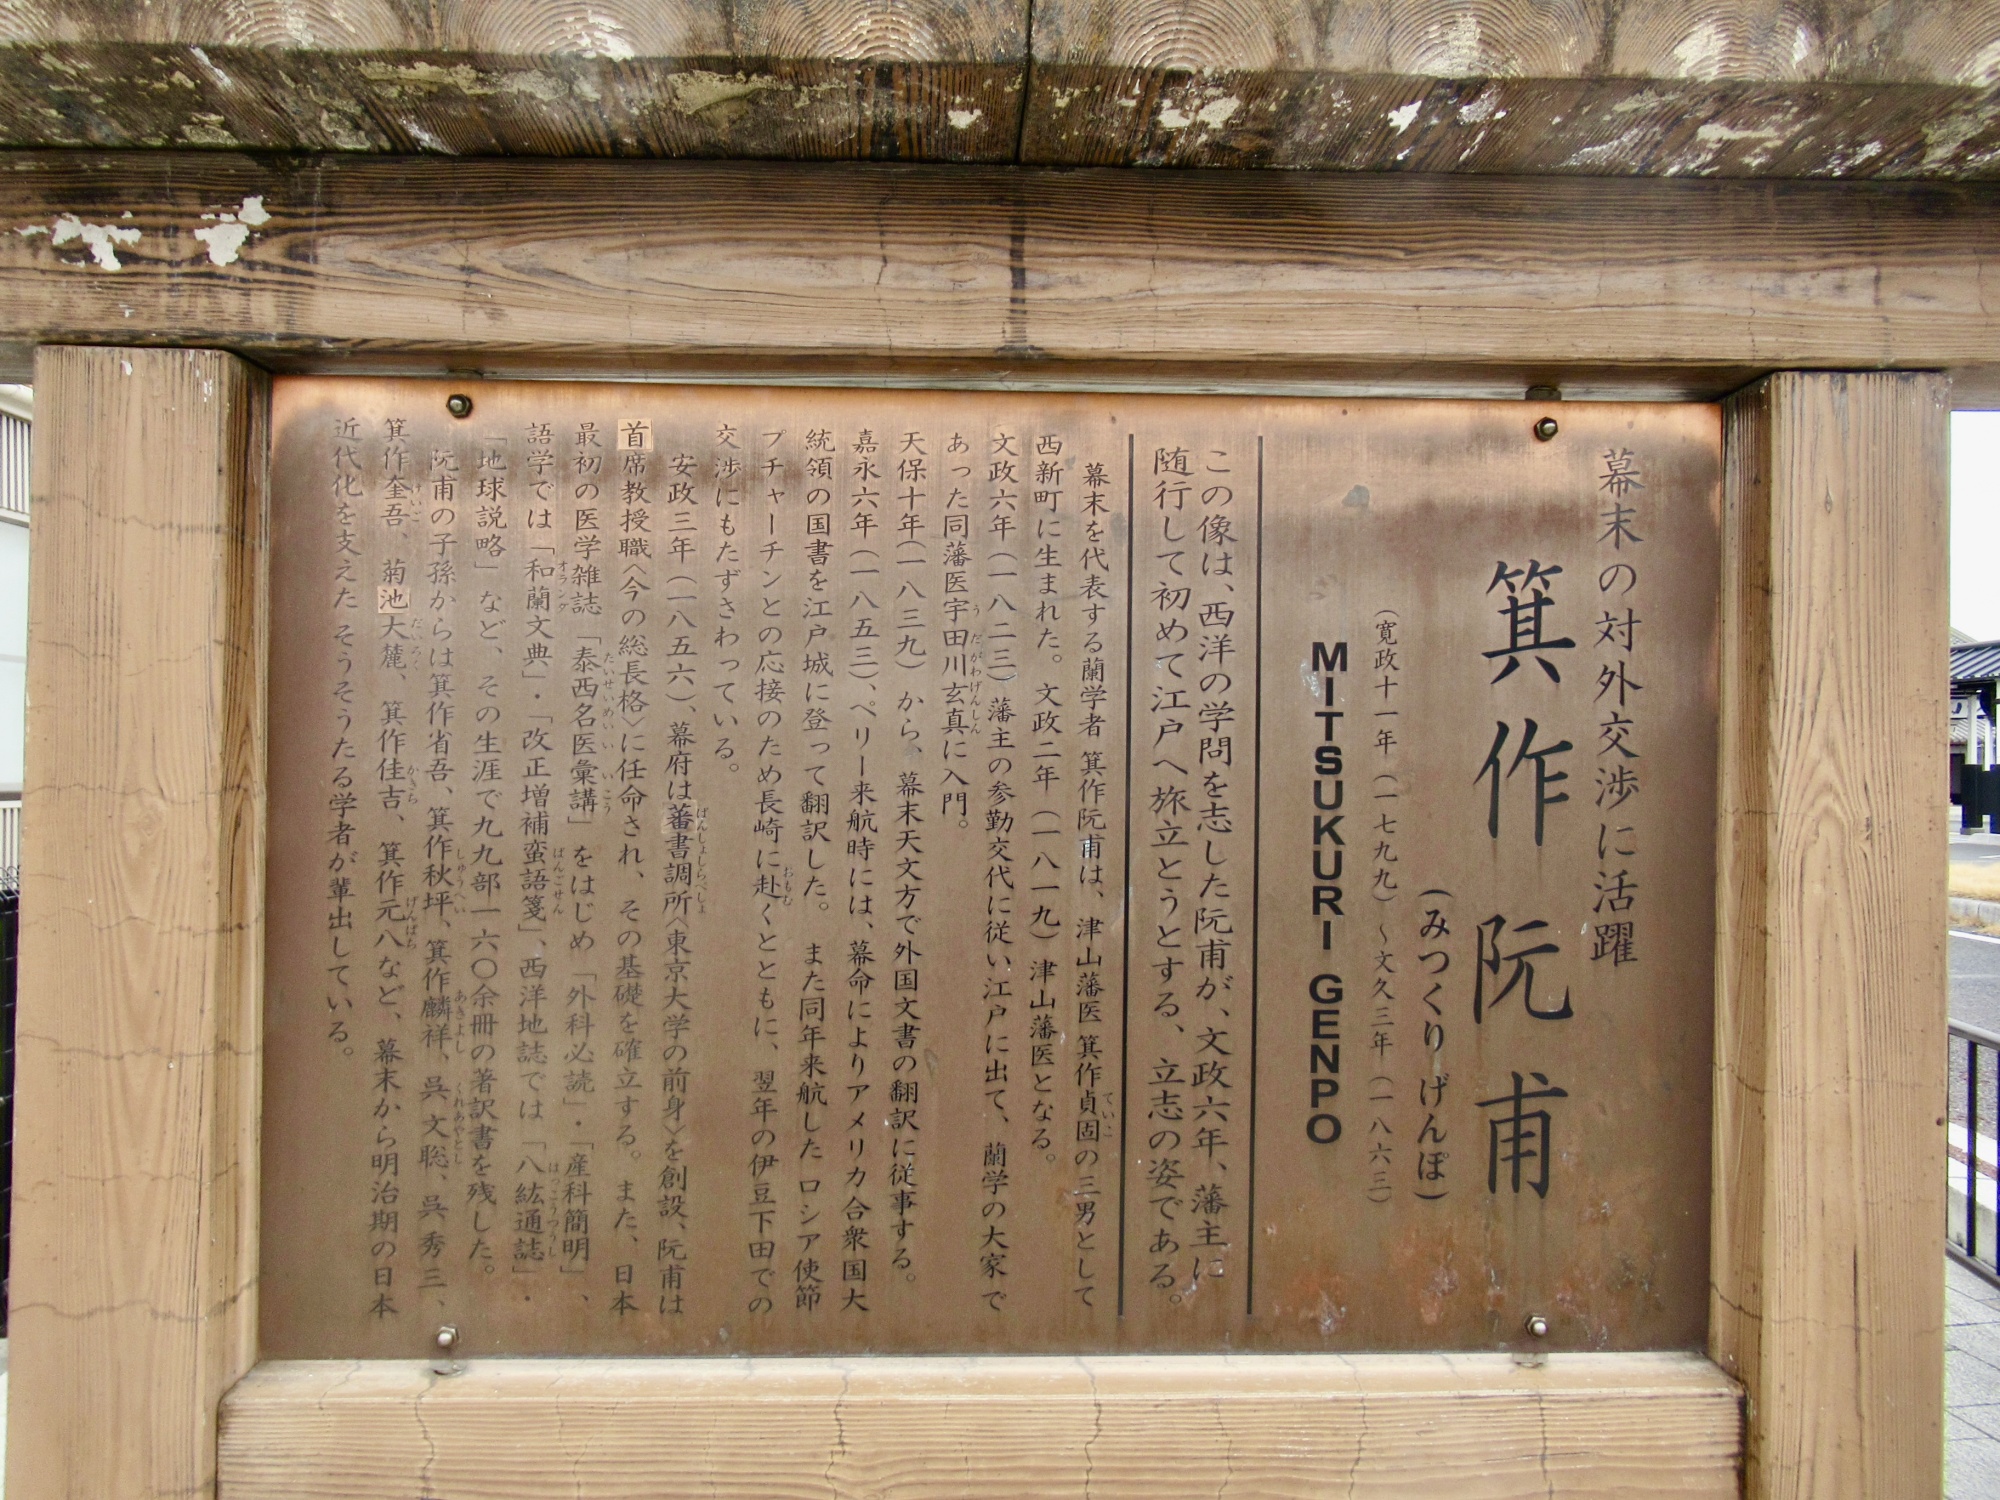 幕末の対外交渉に活躍
箕作阮甫
(みつくり げんぽ)
(寛政十一年(一七九九)~文久三年(一八六三)
MITSUKURI GENPO
この像は、西洋の学問を志した阮甫が、文政六年、藩主に
随行して初めて江戸へ旅立とうとする、立志の姿である。
幕末を代表する蘭学者 箕作阮甫は、津山藩医 箕作貞固の三男として
ていこ
西新町に生まれた。文政二年(一八一九)津山藩医となる。
文政六年(一八二三)藩主の参勤交代に従い江戸に出て、蘭学の大家で
あった同藩医宇田川玄真に入門。
うだがわげんしん
天保十年(一八三九)から、幕末天文方で外国文書の翻訳に従事する。
嘉永六年(一八五三)、ペリー来航時には、幕命によりアメリカ合衆国大
統領の国書を江戸城に登って翻訳した。また同年来航したロシア使節
プチャーチンとの応接のため長崎に赴くとともに、翌年の伊豆下田での
おもむ
交渉にもたずさわっている。
安政三年(一八五六)、幕府は蕃書調所〈東京大学の前身〉を創設、阮甫は
ばんしょしらべしょ
首席教授職〈今の総長格〉に任命され、その基礎を確立する。また、日本
最初の医学雑誌「泰西名医彙講」をはじめ「外科必読」・「産科簡明」、
たいせいめいいいこう
語学では「和蘭文典」・「改正増補蛮語箋」、西洋地誌では「八紘通誌」・
オランダ ばんごせん はっこうつうし
「地球説略」など、その生涯で九九部一六〇余冊の著訳書を残した。
阮甫の子孫からは箕作省吾、箕作秋坪、箕作麟祥、呉文聡、呉秀三、
しゅうへい あきよし くれあやとし
箕作奎吾、菊池大麓、箕作佳吉、箕作元八など、幕末から明治期の日本
けいご だいろく かきち げんぱち
近代化を支えたそうそうたる学者が輩出している。